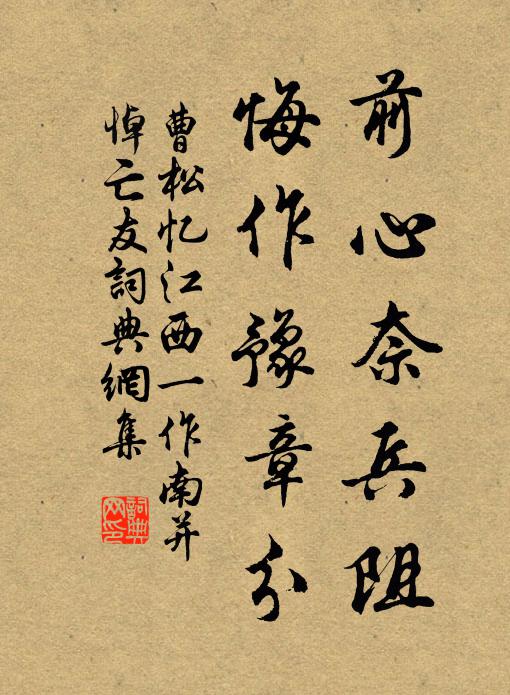 前心奈兵阻
悔作豫章分
曹松忆江西一作南并
悼亡友詞典網集
詞典
网印